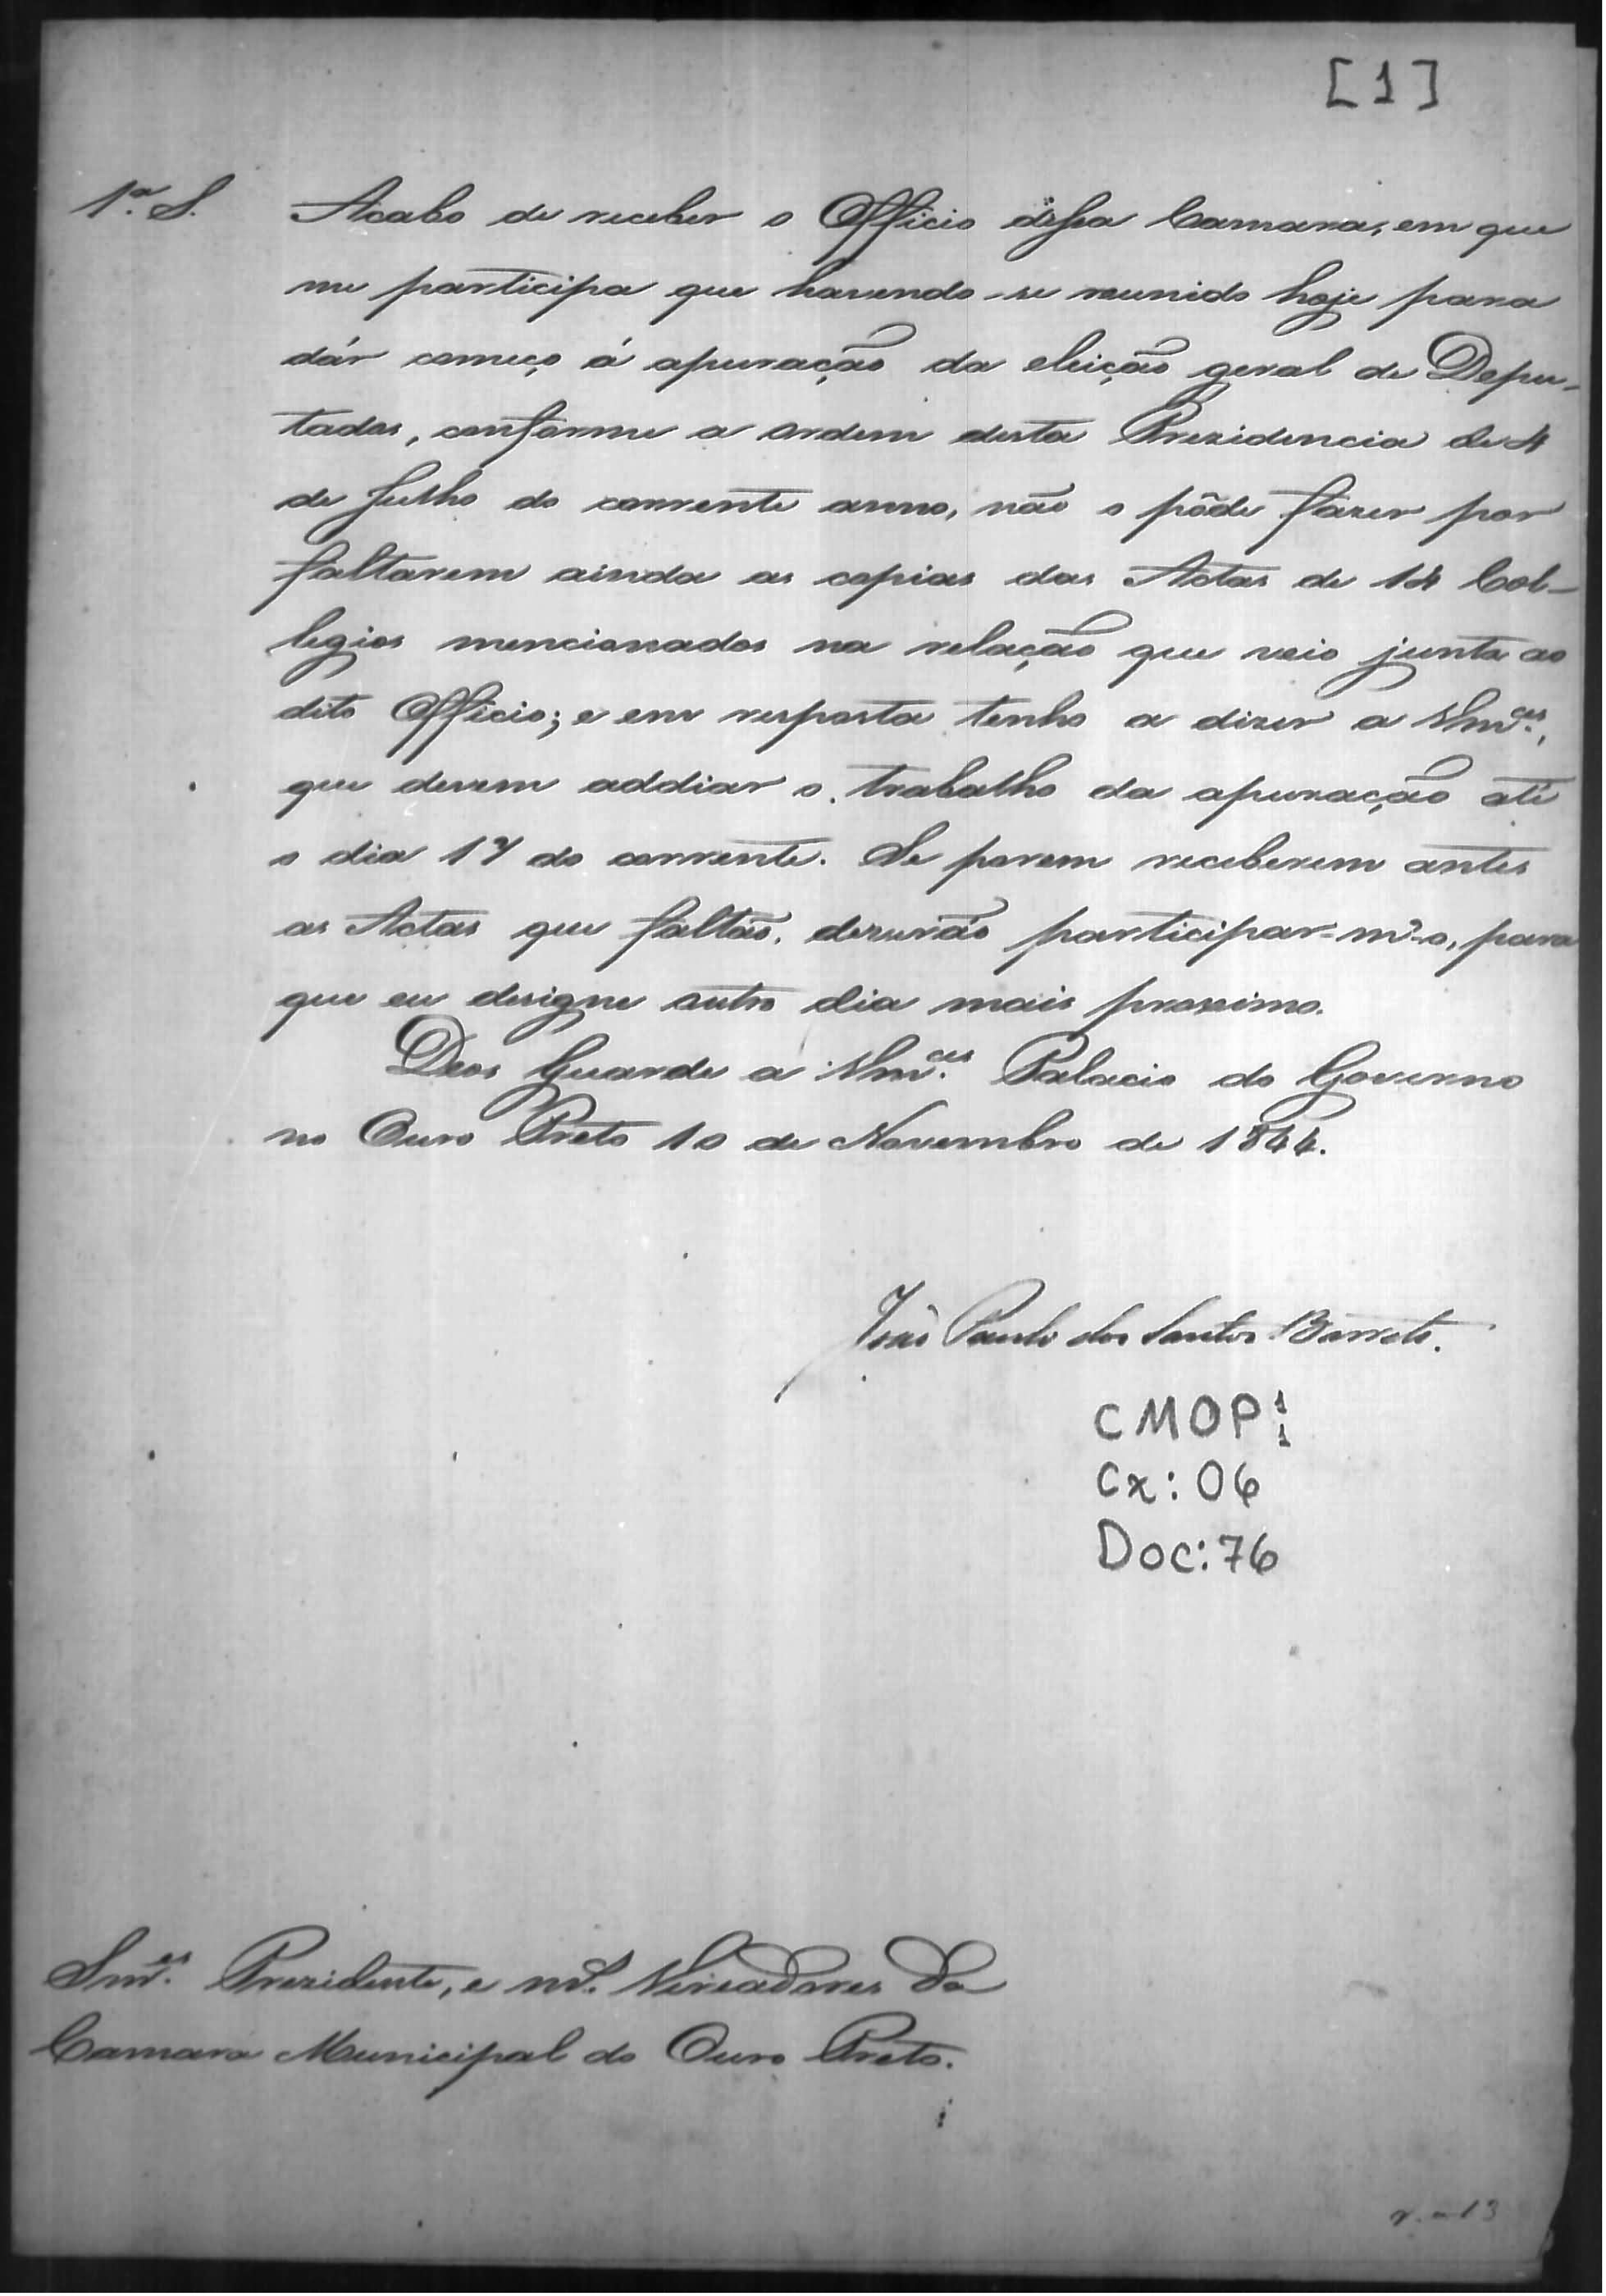 [1]
1.ª S. Acabo de receber o Officio dessa Camara, em que
me participa que havendo-se reunido hoje para
dár começo á apuração da eleição geral de Depu-
tados, conforme a ordem desta Prezidencia de 4
de Julho do corrente anno, não o pôde fazer por
faltarem ainda as copias das Actas de 14 Col-
legios mencionados na relação que veio junta ao
dito Officio; e em resposta tenho a dizer a Vm.ces,
que devem addiar o trabalho da apuração até
o dia 17 do corrente. Se porem receberem antes
as Actas que faltão, deverão participar-m'o, para
que eu designe outro dia mais proximo.
Deos Guarde a Vm.ces Palacio do Governo
no Ouro Preto 10 de Novembro de 1844.
João Paulo dos Santos Barreto.
CMOP 1 1
Cx: 06
Doc: 76
Snr.es Prezidente, e Vereadores da
Camara Municipal do Ouro Preto.